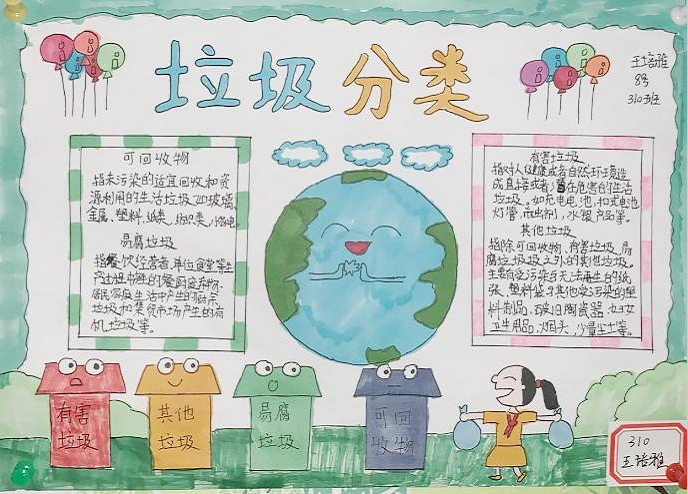 垃圾分类
王培雅
8号
310班
可回收物
指未污染的适宜回收和资
源利用的生活垃圾,如玻璃,
金属、塑料、纸类、纺织类、小家电
易腐垃圾
指餐饮经营者、单位食堂等生
居民家庭生活中产生的
垃圾和集贸市场产生的有
机垃圾等。
有害垃圾
指对人健康或者自然环境造
成直接或者 危害的生活
垃圾。如充电电池,扣式电池
灯管,杀虫剂,水银产品等。
其他垃圾
指除可回收物、有害垃圾、易
腐垃圾之外的其他垃圾。
主要有受污染与无法再生的纸
张、塑料袋与其他受污染的塑
料制品、破旧陶瓷器、妇女
卫生用品、烟头、少量尘土等。
有害
垃圾
其他
垃圾
易腐
垃圾
可回
收物
310
王培雅